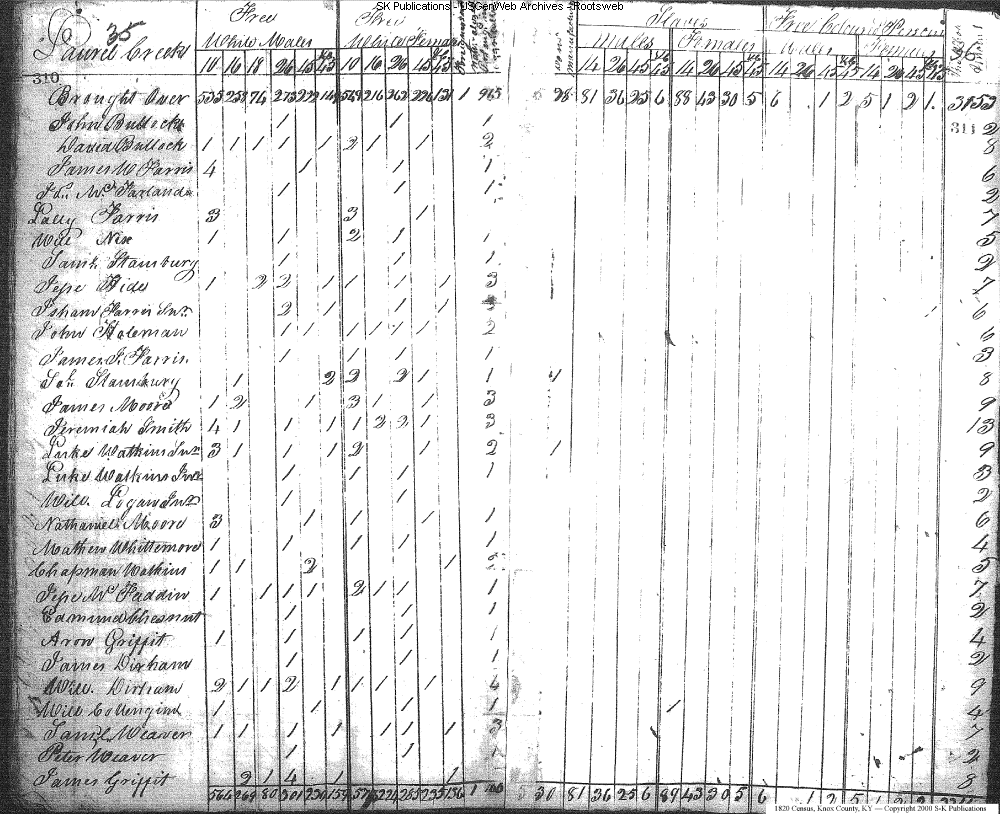 SK Publications - USGenWeb Archives - Rootsweb
35
Laurel Creek
Free White Males
Free White Females
Slaves
Males Females
Free Colored Persons
Males Females
10 16 18 26 45 45 10 16 26 45 45
14 26 45 45 14 26 45 45 14 26 45 45 14 26 45 45
310
Brought Over 535 258 74 273 222 149 569 216 362 226 131 1 965 28 81 36 25 6 88 43 30 5 6 1 2 5 1 2 1 3153
311
John Bullock 1 1 1 2
David Bullock 1 1 1 1 1 2 1 1 2 8
James W Farris 4 1 1 1 6
Jno. McFarland 1 1 1 2
Lally Farris 3 3 1 7
Will Nix 1 1 2 1 1 5
Saml. Stansbury 1 1 1 2
Jesse Hide 1 2 2 1 1 1 1 3 7
Isham Farris Snr 2 1 1 1 1 6
John Holeman 1 1 1 1 1 1 2 6
James J. Farris 1 1 1 3
Sol. Stansbury 1 2 2 2 1 1 1 8
James Moore 1 2 1 3 1 1 3 9
Jeremiah Smith 4 1 1 1 1 2 2 1 3 13
Luke Watkins Snr 3 1 1 1 2 1 2 1 9
Luke Watkins Jnr 1 1 1 1 3
Will. Logan Jnr 1 1 2
Nathaniel Moore 3 1 1 1 1 6
Mathew Whittemore 1 1 1 1 1 4
Chapman Watkins 1 1 2 1 5
Jesse McFaddin 1 1 1 1 2 1 1 1 7
Edmund Chesnut 1 1 1 2
Aron Griffit 1 1 1 1 1 4
James Dirham 1 1 1 2
Will. Dirham 2 1 1 2 1 1 1 1 4 9
Will Collengim 1 1 1 1 1 4
Saml. Weaver 1 1 1 1 1 1 1 3 7
Peter Weaver 1 1 1 2
James Griffit 2 1 4 1 1 8
566 269 80 301 230 159 30 81 36 25 6 89 43 30 5 6
1820 Census, Knox County, KY — Copyright 2000 S-K Publications